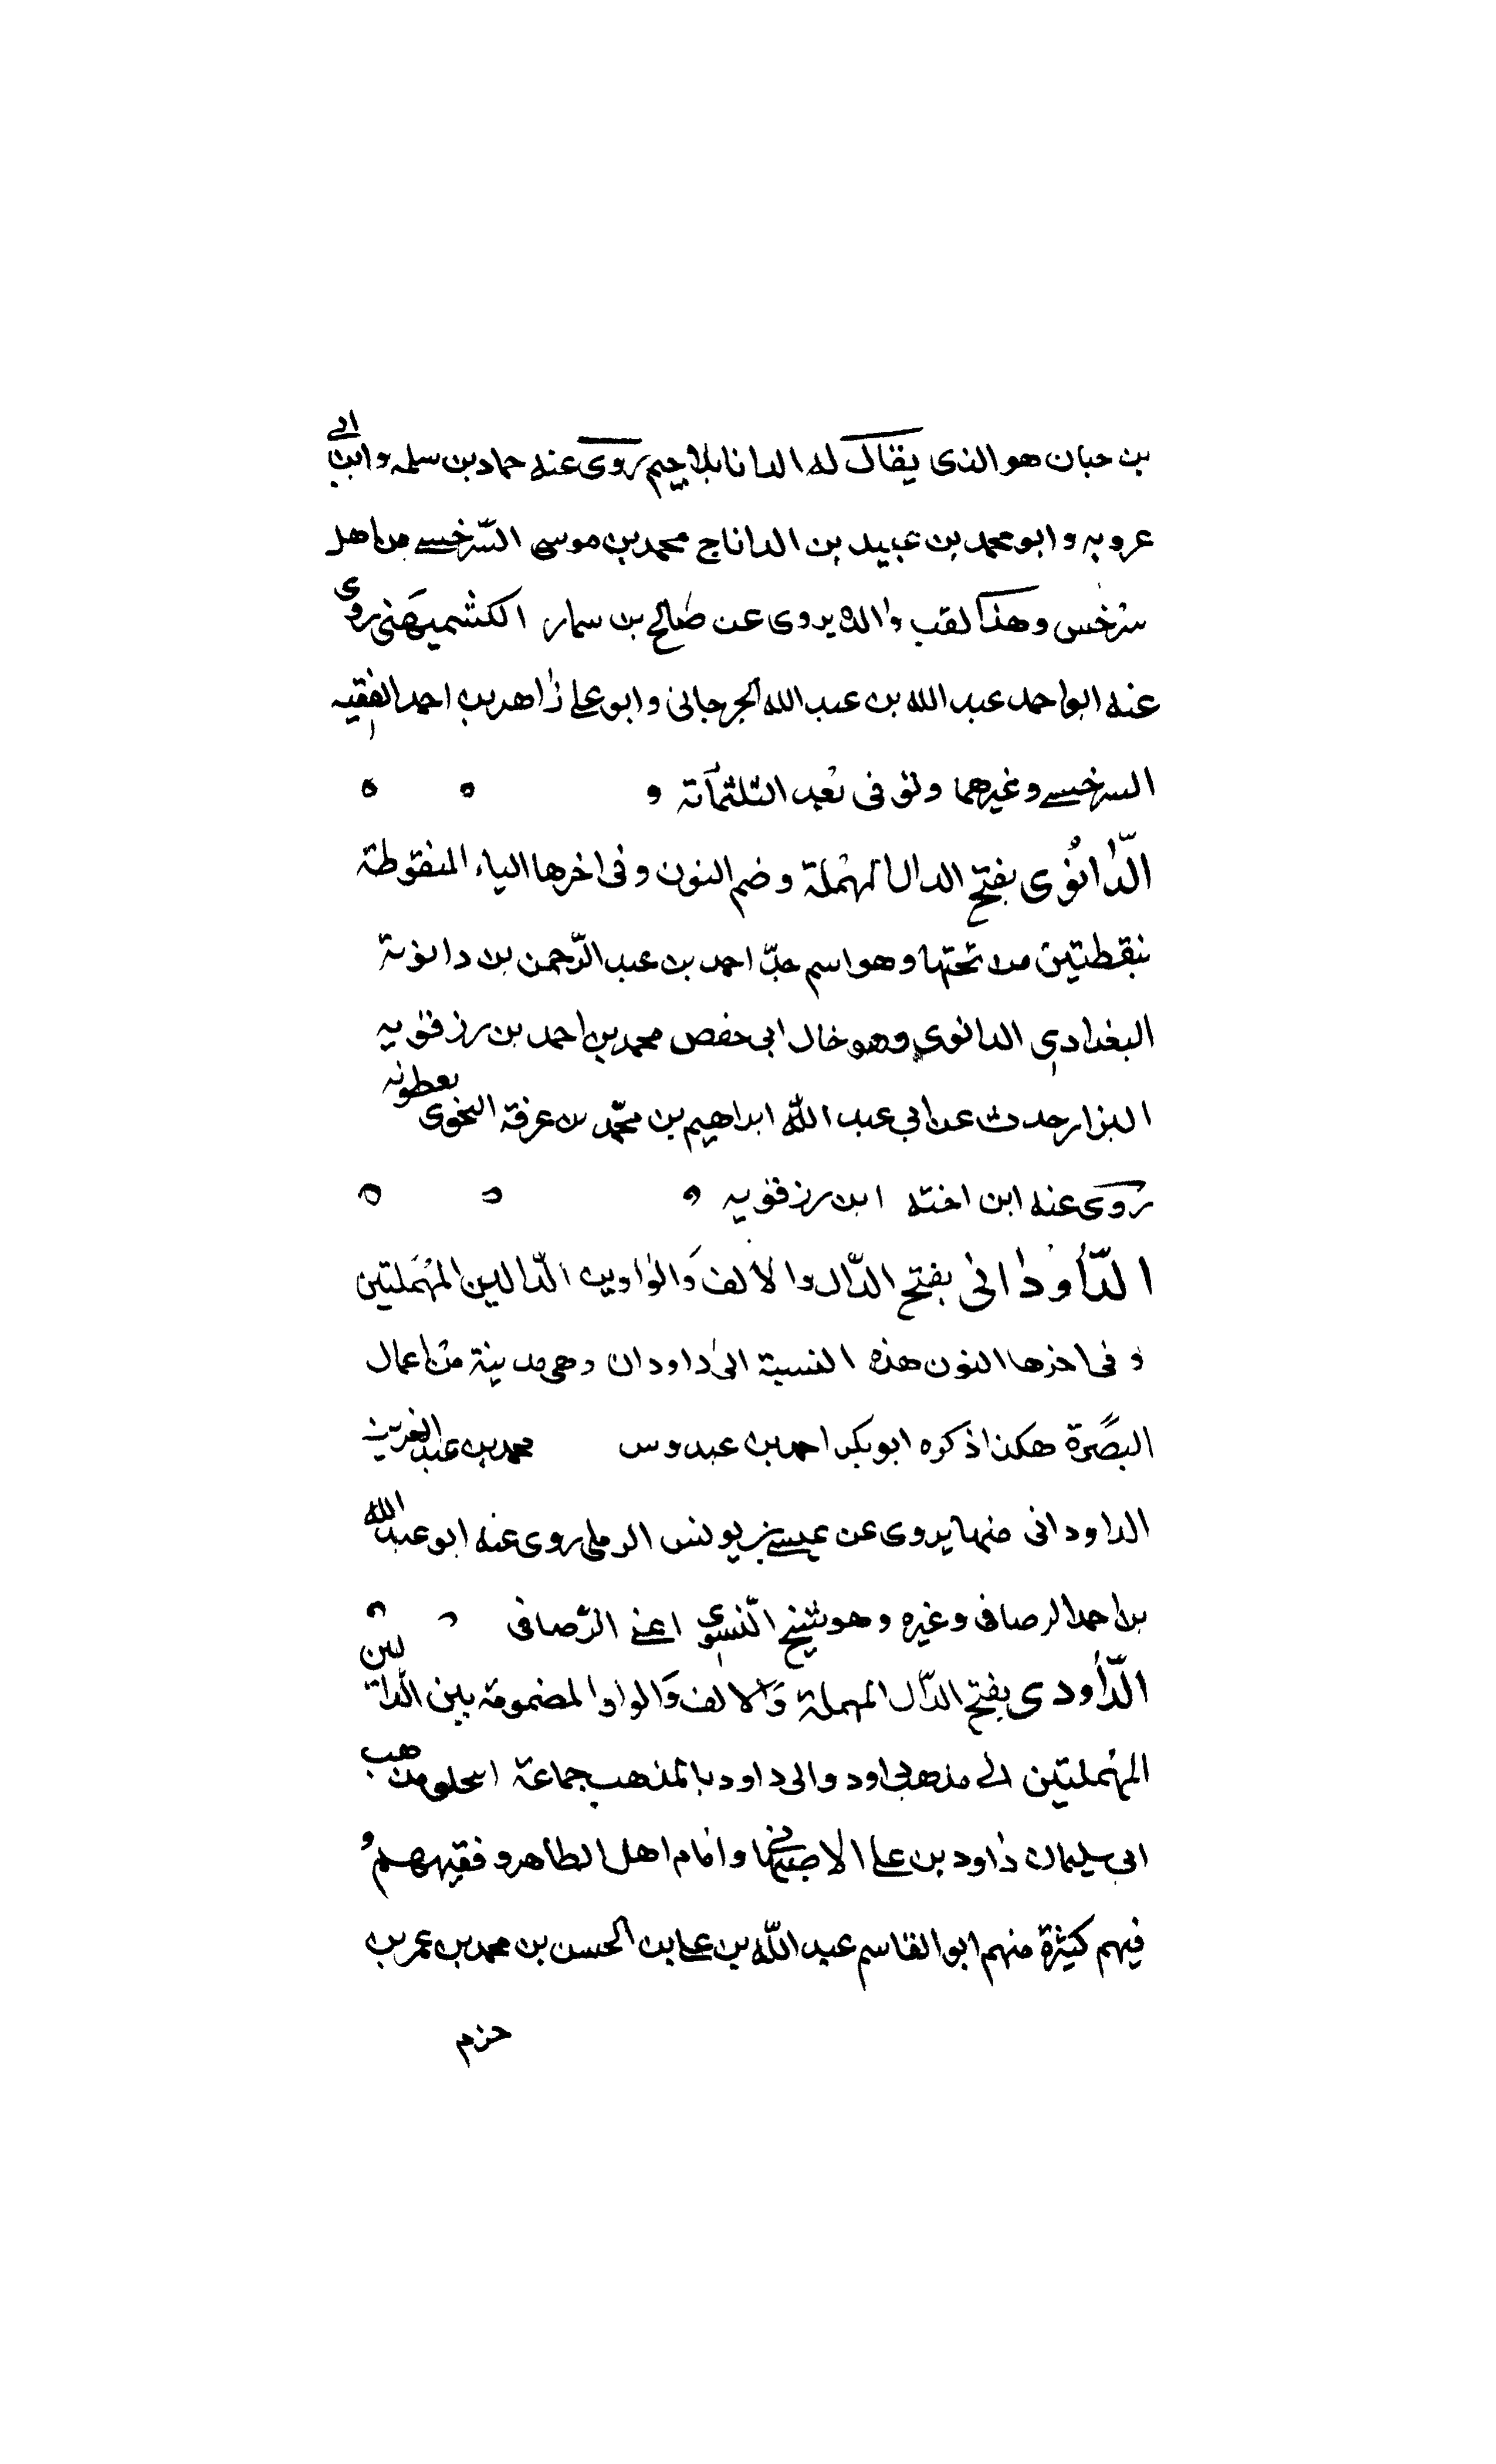 بن حبان هو الذى يقال له الدانا بلا جيم روى عنه حماد بن سلمه وابن ابى
عروبه وابو محمد بن عبيد بن الداناج محمد بن موسى السّرخسى من اهل
سرخس وهذا لقب والده يروى عن صالح بن سمار الكشميهنى روى
عنه ابو احمد عبد الله بن عبد الله الجرجانى وابو على زاهر بن احمد الفقيه
السرخسى وغيرهما وتوفى بعد الثلثمآئة
الدّانُوى بفتح الدال المهملة وضم النون وفى اخرها الياء المنقوطة
بنقطتين من تحتها وهو اسم جدّ احمد بن عبد الرّحمن بن دانويه
البغدادى الدانوى وهو خال ابى حفص محمد بن احمد بن رزقويه
البزار حدث عن ابى عبد اللّه ابراهيم بن محمّد بن عرفة النحوى نفطويه
روى عنه ابن اخته ابن رزقويه
الدّاوَدانى بفتح الدّال والالف والواو بين الدّالين المهملتين
وفى اخرها النون هذه النسبة الى داودان وهى مدينة من اعمال
البصرة هكذا ذكره ابو بكر احمد بن عبدوس محمد بن عبد العزيز
الداودانى منها يروى عن عيسى بن يونس الرملى روى عنه ابو عبد الله
بن احمد الرصافى وغيره وهو شيخ النّسوى اعنى الرّصافى
الدّاودى بفتح الدّال المهملة والالف والواو المضمومة بين الدالين
المهملتين الى مذهب داود والى داود بالمذهب جماعة انتحلو مذهب
ابى سليمان داود بن على الاصبهانى وامام اهل الظاهر وفقيههم و
فيهم كثرة منهم ابو القاسم عبد اللّه بن على بن الحسن بن محمد بن عمر بن
حزم